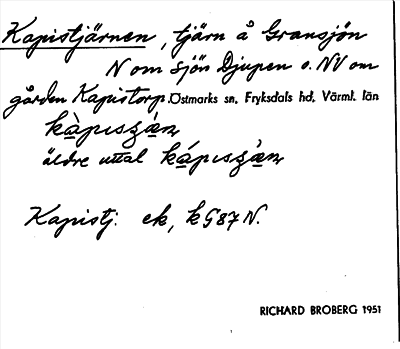 Kapistjärnen, tjärn å Gransjön
N om sjön Djupen o. NV om
gården Kapistorp. Östmarks sn, Fryksdals hd, Värml. län
äldre uttal
Kapistj. ek, k G87 N.
RICHARD BROBERG 1951